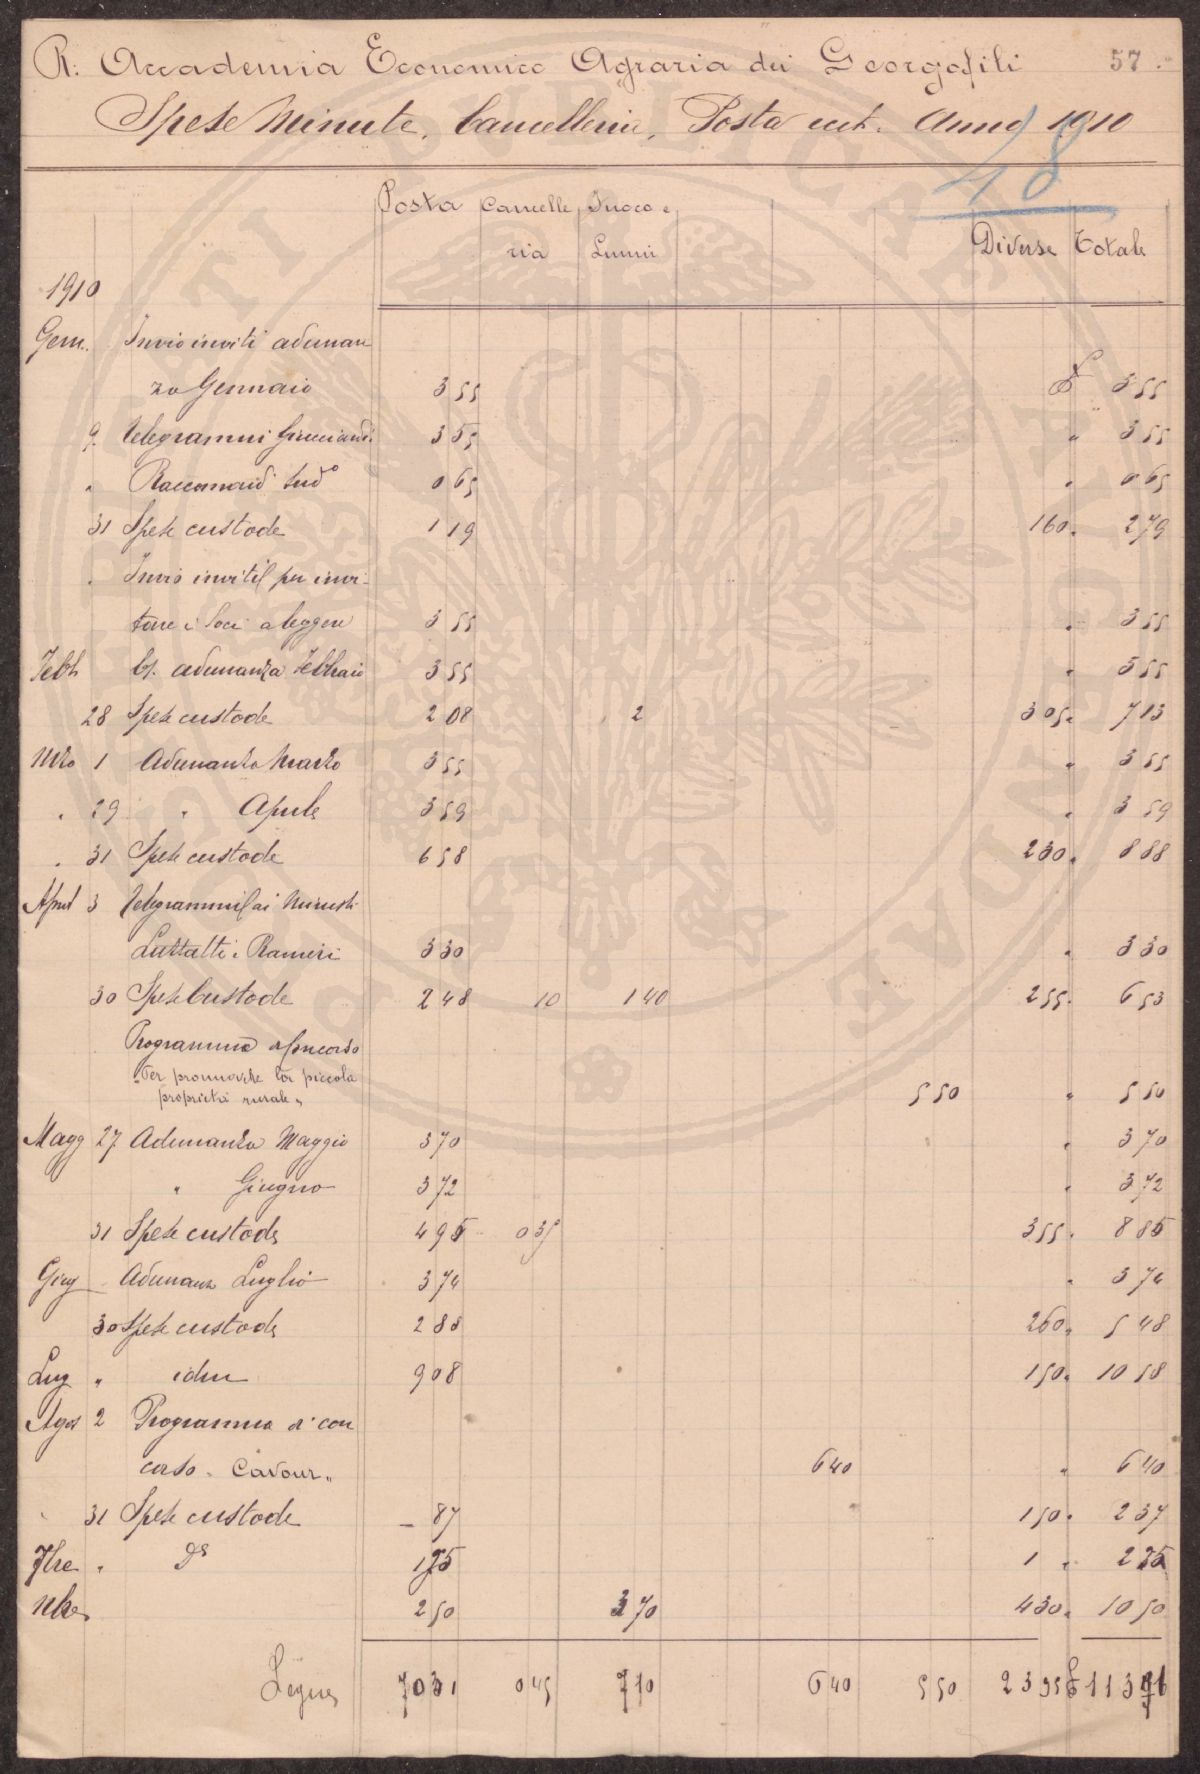 R. Accademia Economico Agraria dei Georgofili 57.
Spese Minute, Cancelleria, Posta ect. Anno 1910
48
Posta Cancelle Fuoco e
ria Lumi Diverse Totale
1910
Genn. Invio inviti adunan
za Gennaio 3 55 £ 3 55
9 Telegrammi Guicciardi 3 55 " 3 55
" Raccomand 0 65 " 0 65
31 Spese custode 1 19 1 60 " 2 79
" Invio inviti per invi-
tare i Soci a leggere 3 55 " 3 55
Febb adunanza Febbraio 3 55 " 3 55
28 Spese custode 2 08 2 3 05 " 7 13
Mzo 1 Adunanza Marzo 3 55 " 3 55
" 29 " Aprile 3 59 " 3 59
" 31 Spese custode 6 58 2 30 " 8 88
April 3 Telegrammi ai Ministri
Luzzatti e Raineri 3 30 " 3 30
30 Spese Custode 2 48 10 1 40 2 55 " 6 53
Programma Concorso
"Per promuovere la piccola
proprietà rurale" 5 50 " 5 50
Magg 27 Adunanza Maggio 3 70 " 3 70
" Giugno 3 72 " 3 72
31 Spese custode 4 95 0 35 3 55 " 8 85
Giug Adunanz Luglio 3 74 " 3 74
30 Spese custode 2 88 2 60 " 5 48
Lug " idem 9 08 1 50 " 10 58
Agos 2 Programma di con
corso "Cavour" 6 40 " 6 40
" 31 Spese custode - 87 1 50 " 2 37
7bre " Ds 1 25 1 " 2 25
Nbre 2 50 3 70 4 30 " 10 50
Segue 70 31 0 45 7 10 6 40 5 50 23 95 £ 113 71